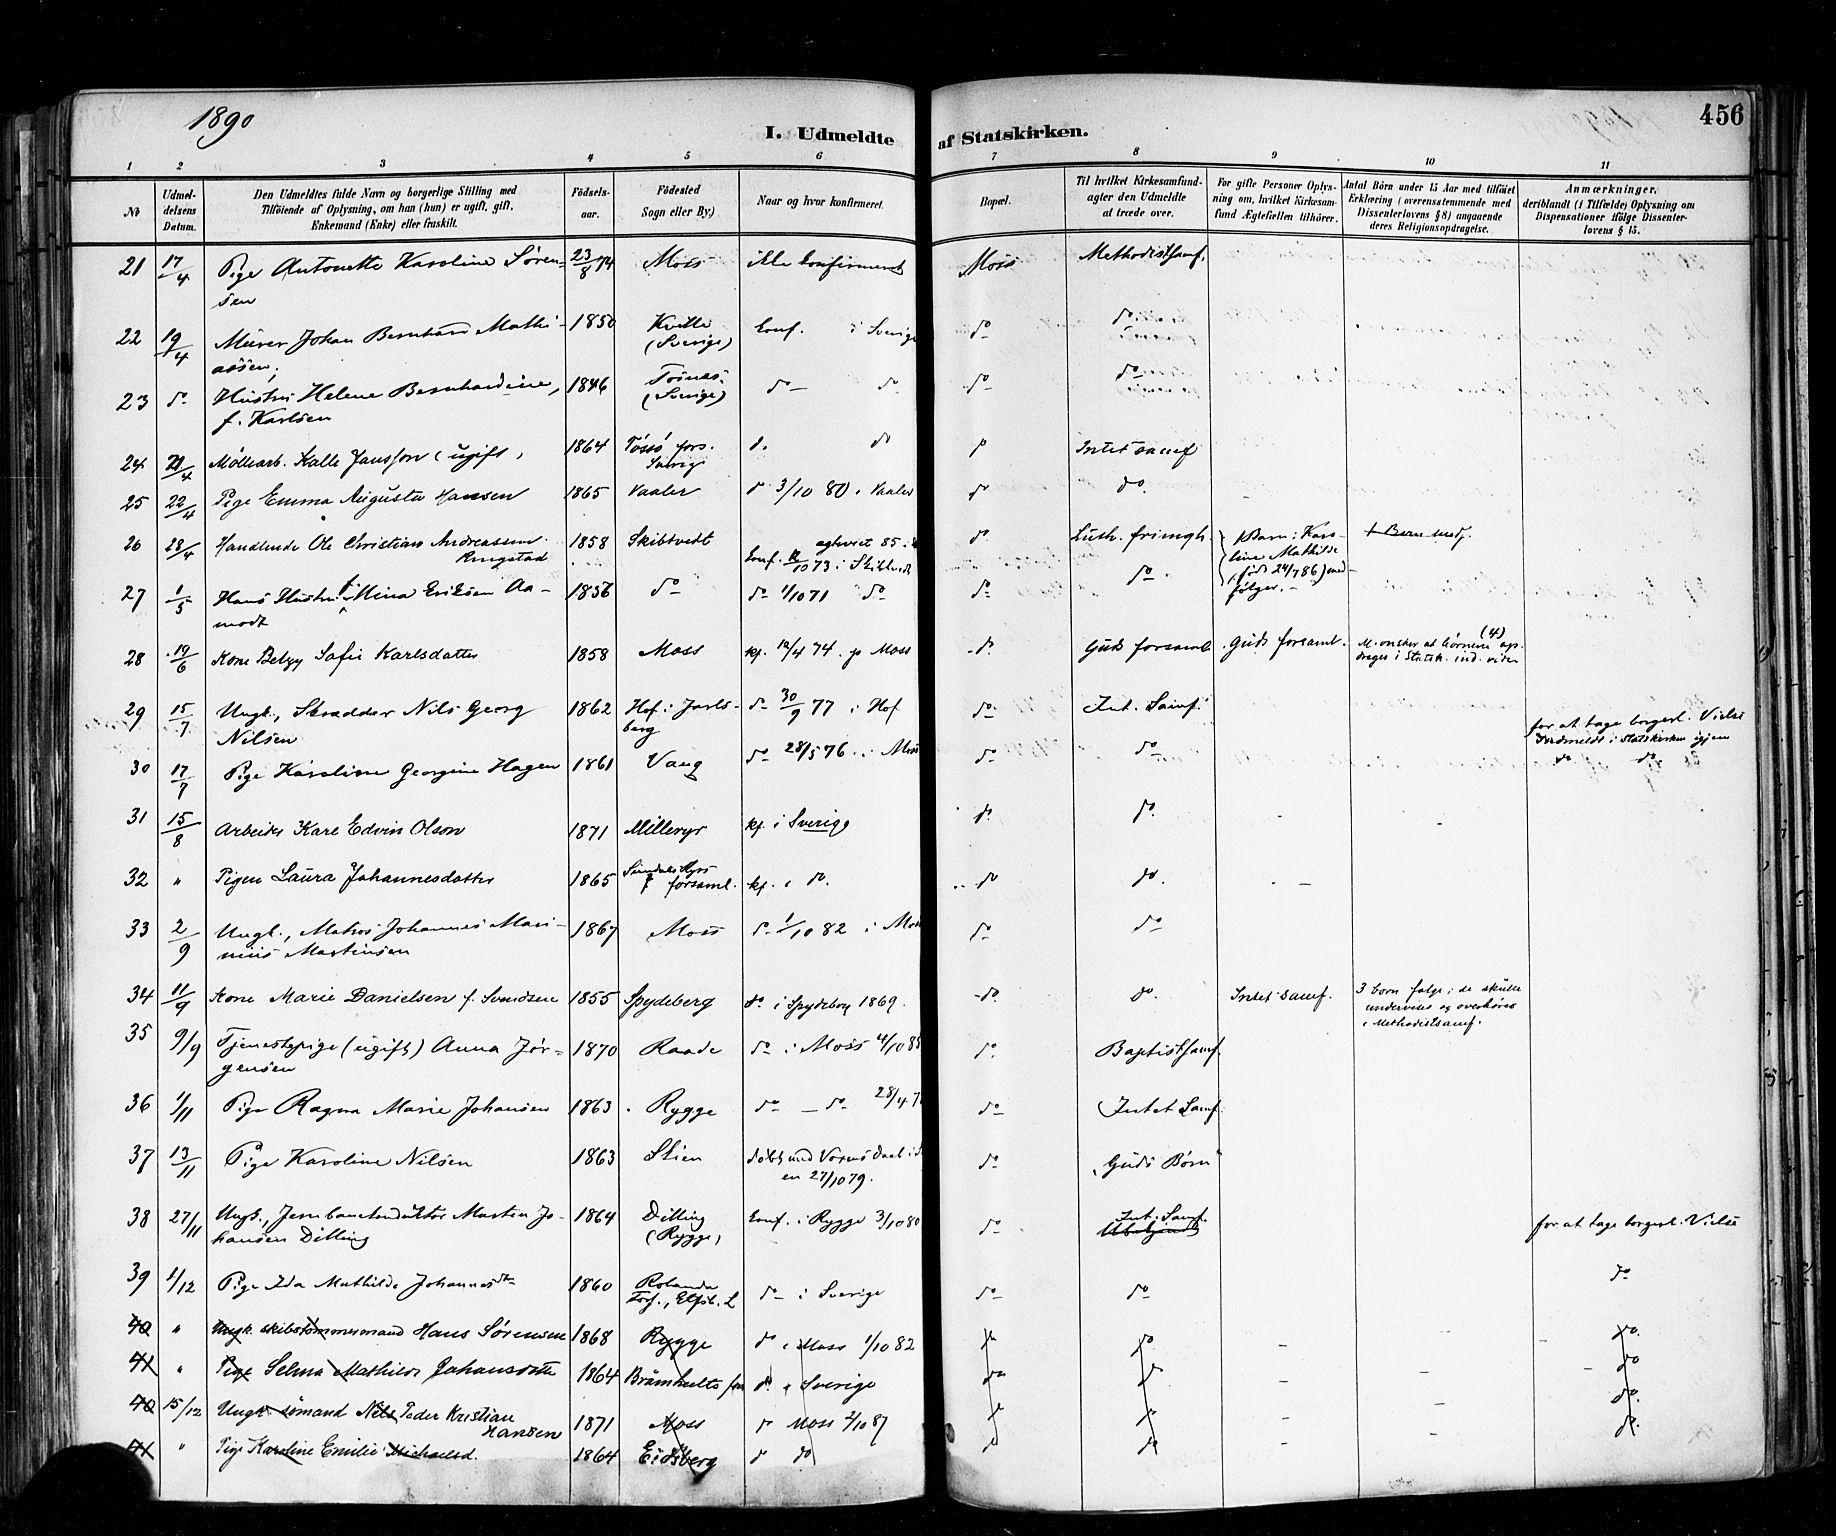 1890
456
I. Udmeldte af Statskirken.
1 2 3 4 5 6 7 8 9 10 11
No
Udmeldelsens Datum.
Den Udmeldtes fulde Navn og borgerlige Stilling med
Tilføiende af Oplysning, om han (hun) er ugift, gift,
Enkemand (Enke) eller fraskilt.
Fødsels-
aar.
Fødested
Sogn eller By.)
Naar og hvor konfirmeret.
Bopæl.
Til hvilket Kirkesamfund-
agter den Udmeldte
at træde over.
For gifte Personer Oplys-
ning om, hvilket Kirkesam-
fund Ægtefællen tilhører.
Antal Børn under 15 Aar med tilføiet
Erklæring (overensstemmende med
Dissenterlovens § 8) angaaende
deres Religionsopdragelse.
Anmærkninger,
deriblandt (i Tilfælde) Oplysning om
Dispensationer ifølge Dissenter-
lovens § 15.
21 17/4 Pige Antonette Karoline Søren- 23/8 74 Moss ikke konfirmeret Moss Methodistsamf.
sen
22 19/4 Murer Johan Bernhard Mathi- 1850 Kville Conf. i Sverige do do
assen, (Sverige)
23 do Hustru Helene Bernhardine, 1846 Tosnes do do do do
f. Karlsen (Sverige)
24 21/4 Møllearb. Kalle Jansson (ugift, 1864 Tössö fors. d. do do Intet samf
Sverig
25 22/4 Pige Emma Augusta Hansen 1865 Vaaler do 3/10 80 i Vaaler do do.
26 28/4 Handlende Ole Christian Andreassen 1858 Skibtvedt do Luth. frimgh. 1 Barn: Karo- 1 Barn medf.
Ringstad Conf. 73 i Skibtvedt line Mathilde
27 1/5 Hans Hustru Mina Eriksen Aa- 1856 do do 1/10 71 do do do (født 24/7 86) med-
modt følger.
28 19/6 Kone Betzy Sofie Karlsdatter 1858 Moss kf. 12/4 74 Moss do. Guds forsaml Guds forsaml. M. ønsker at børnene (4) op-
drages i Statsk. ind. videre
29 15/7 Ungk., Skrædder Nils Georg 1862 Hof i Jarls- do 30/9 77 i Hof do Int. Samf. for at tage borgerl. Vielse
Nilsen berg Indmeldt i Statskirken igjen
30 17/7 Pige Karoline Georgine Hagen 1861 Vang do 28/5 76 i Moss do do do do.
31 15/8 Arbeider Karl Edvin Olson 1871 Milleryr kf. i Sverige do do.
32 " Pigen Laura Johannesdatter 1865 Sundals Ryrs kf. i do. do do.
forsaml.
33 2/9 Ungk., Matros Johannes Mari- 1867 Moss do 1/10 82 i Moss do do
nius Martinsen
34 11/9 Kone Marie Danielsen f. Svendsen 1855 Spydeberg do i Spydeberg 1869. do. do. Intet samf. 3 børn følge; de skulle
undervises og overhøres
i Methodistsamf.
35 9/9 Tjenestepige (ugift) Anna Jør- 1870 Raade do i Moss do Baptistsamf.
gensen
36 1/11 Pige Ragna Marie Johansen 1863 Rygge do — do do Intet Samf.
37 13/11 Pige Karoline Nilsen 1863 Skien do „Guds Børn"
27/10 79.
38 27/11 Ungk., Jernbanekonduktør Martin Jo- 1864 Dilling Conf. i Rygge 3/10 80 do Int. Samf. for at tage borgerl. Vielse
hansen Dilling (Rygge)
39 1/12 Pige Ida Mathilde Johannesdtr 1860 do i Sverige do do do
40 " Ungk. skibstømmermand Hans Sørensen 1868 Rygge do i Moss 1/10 82 do do do.
41 " Pige Selma Mathilde Johansdatter 1864 Brämhults do i Sverige do do do
40 15/12 Ungk. sømand Nils Peder Kristian 1871 Moss do Moss 2/10 87 do do do.
Hansen
41 " Pige Karoline Emilie Michaelsd. 1864 Eidsberg do do do do do.